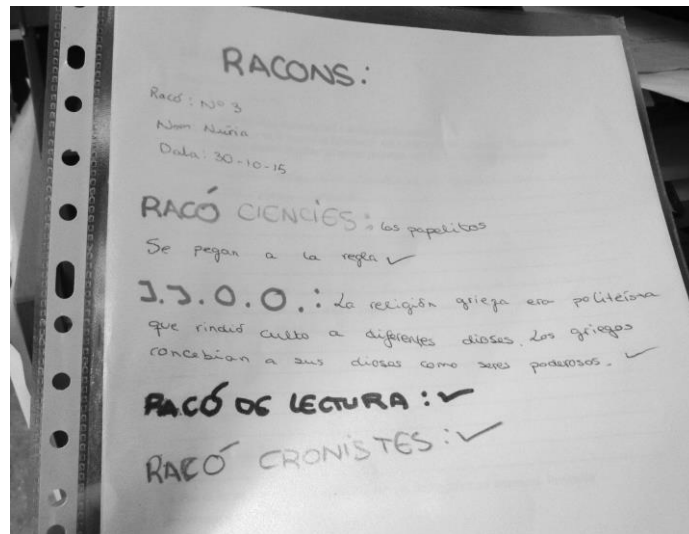 RACONS:
Racó: Nº 3
Nom Núria
Data: 30-10-15
RACÓ CIENCIES: los papelitos
Se pegan a la regla ✓
J.J.O.O.: La religión griega era politeísma
que rindió culto a diferentes dioses. Los griegos
concebian a sus diosas como seres poderosos. ✓
RACÓ DE LECTURA: ✓
RACÓ CRONISTES: ✓